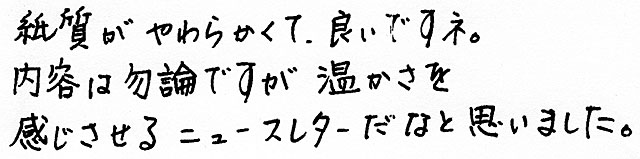 紙質がやわらかくて、良いですネ。
内容は勿論ですが温かさを
感じさせるニュースレターだなと思いました。